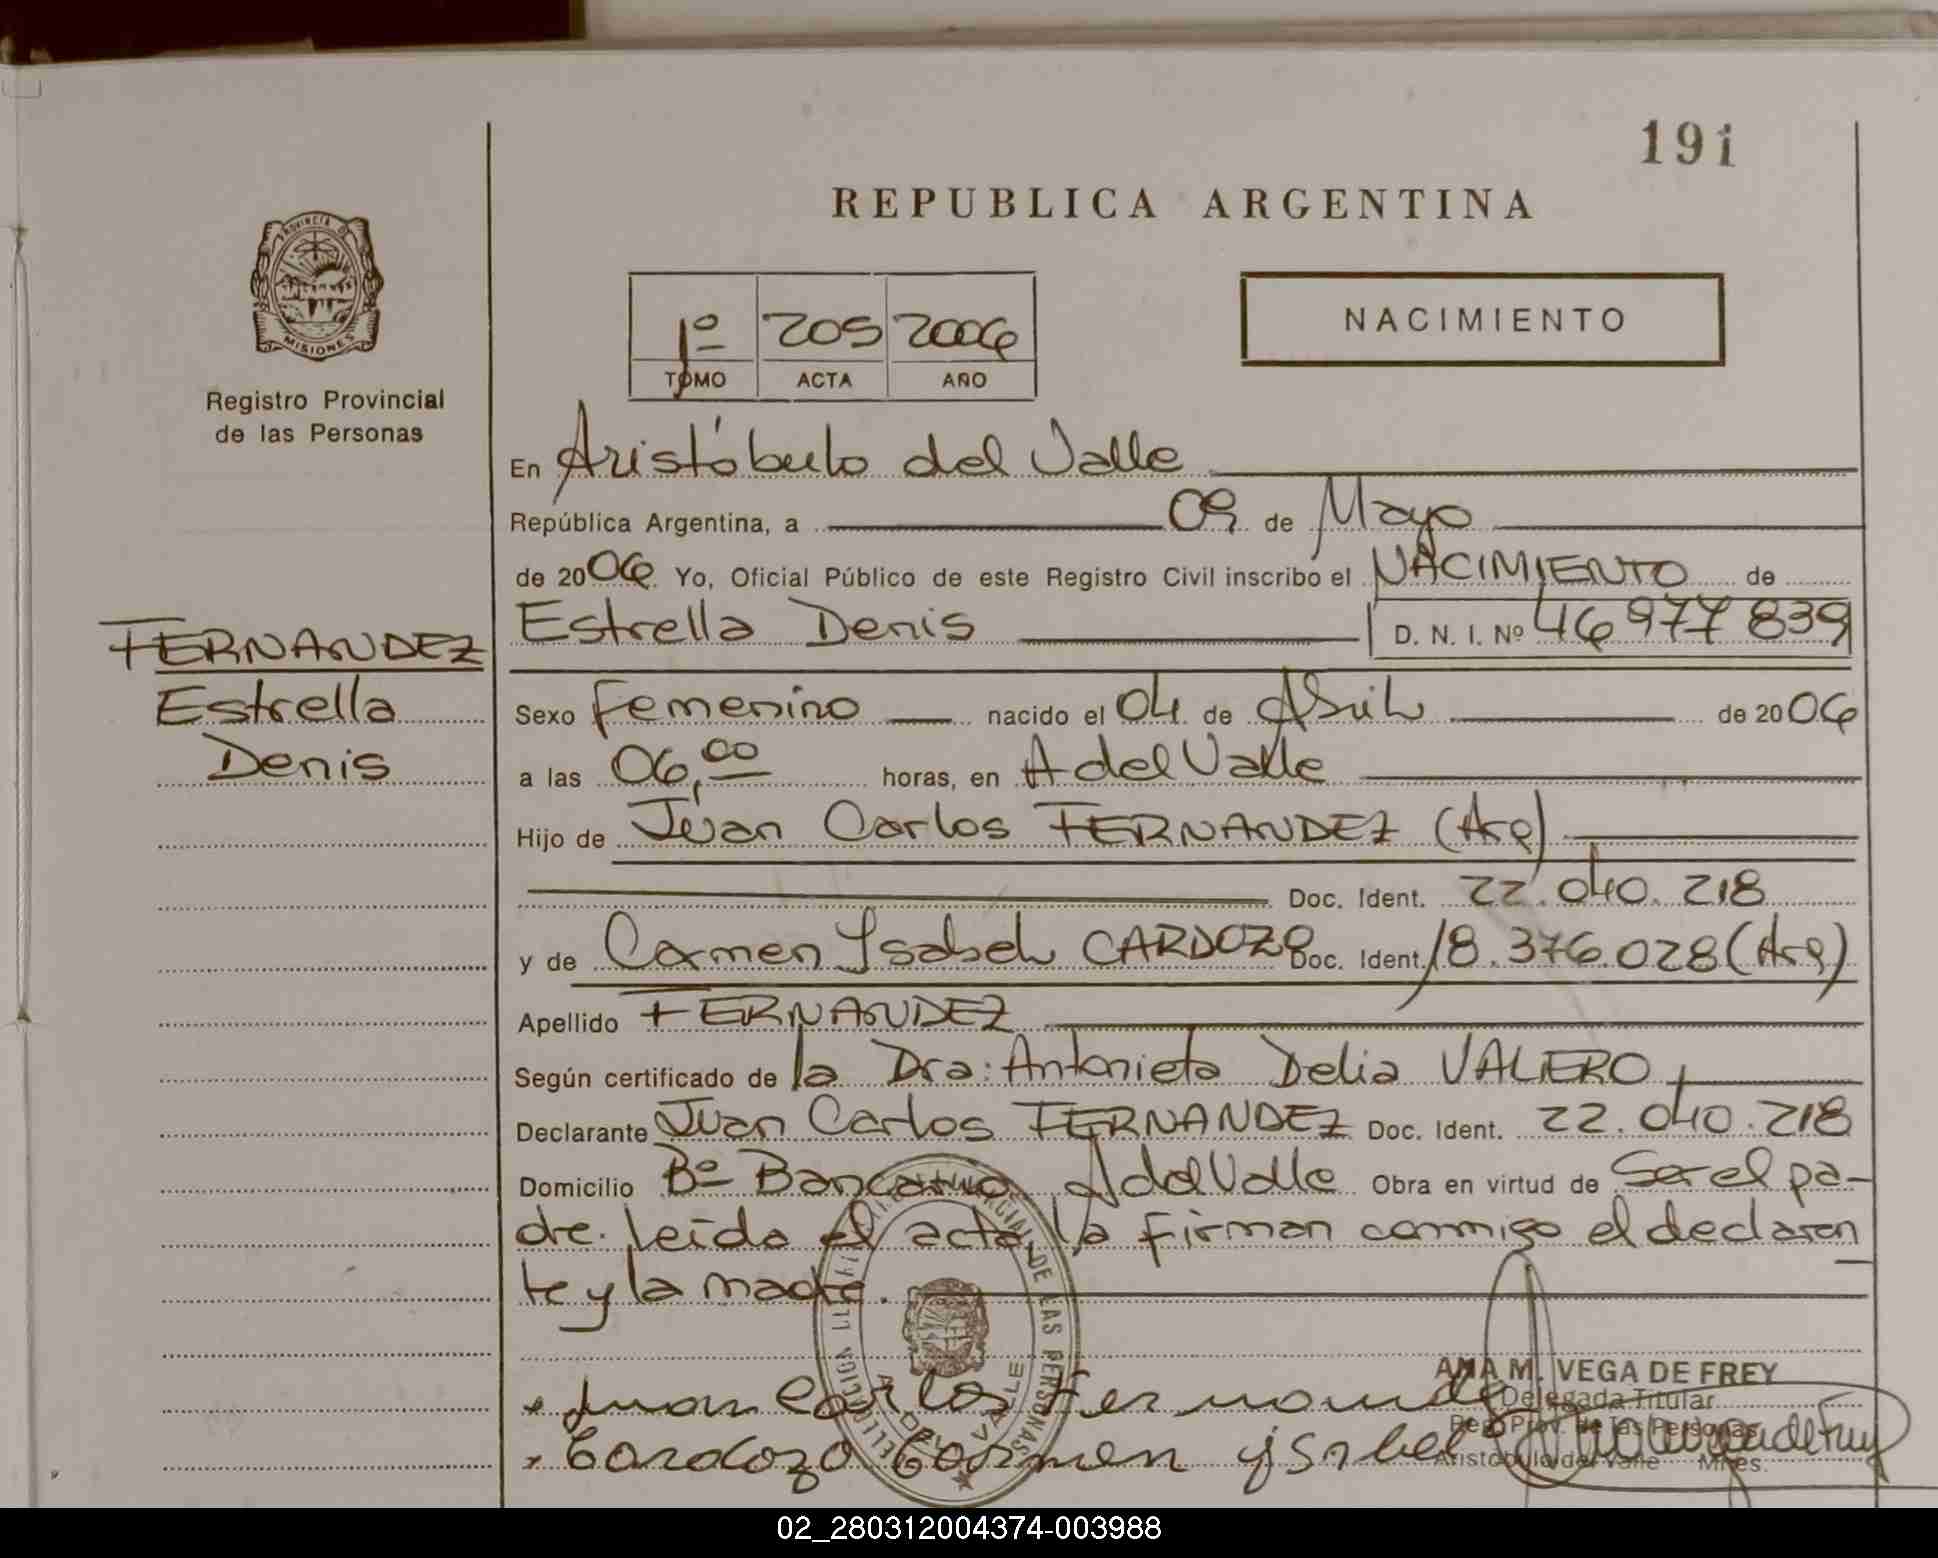 191
REPUBLICA ARGENTINA
PROVINCIA DE
MISIONES
Registro Provincial
de las Personas
1º 205 2006
TOMO ACTA AÑO
NACIMIENTO
En Aristóbulo del Valle
República Argentina, a 09 de Mayo
de 2006. Yo, Oficial Público de este Registro Civil inscribo el NACIMIENTO de
Estrella Denis D. N. I. Nº 46 977 839
FERNANDEZ
Estrella
Denis
Sexo Femenino nacido el 04 de Abril de 2006
a las 06,00 horas, en A del Valle
Hijo de Juan Carlos FERNANDEZ (Arg)
Doc. Ident. 22.040.218
y de Carmen Ysabel CARDOZO Doc. Ident. 18.376.028 (Arg)
Apellido FERNANDEZ
Según certificado de la Dra: Antonieta Delia VALERO
Declarante Juan Carlos FERNANDEZ Doc. Ident. 22.040.218
Domicilio Bº Bancario A del Valle Obra en virtud de Ser el pa-
dre. leida el acta, la firman conmigo el declaran
te y la madre.
DE LAS PERSONAS
A. DEL VALLE
Juan Carlos Fernande
Cardozo Carmen ysabel
ANA M. VEGA DE FREY
Delegada Titular
Reg. Prov. de las Personas
Aristóbulo del Valle Mnes.
02_280312004374-003988